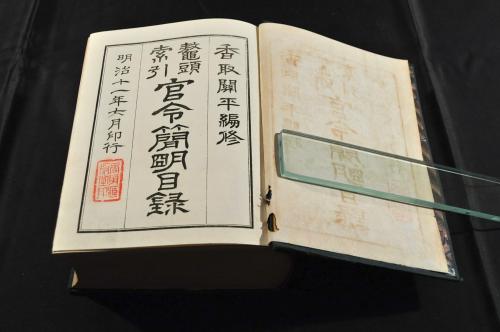 香取關平編修
鼇頭
索引
官令簡明目錄
明治十一年六月印行